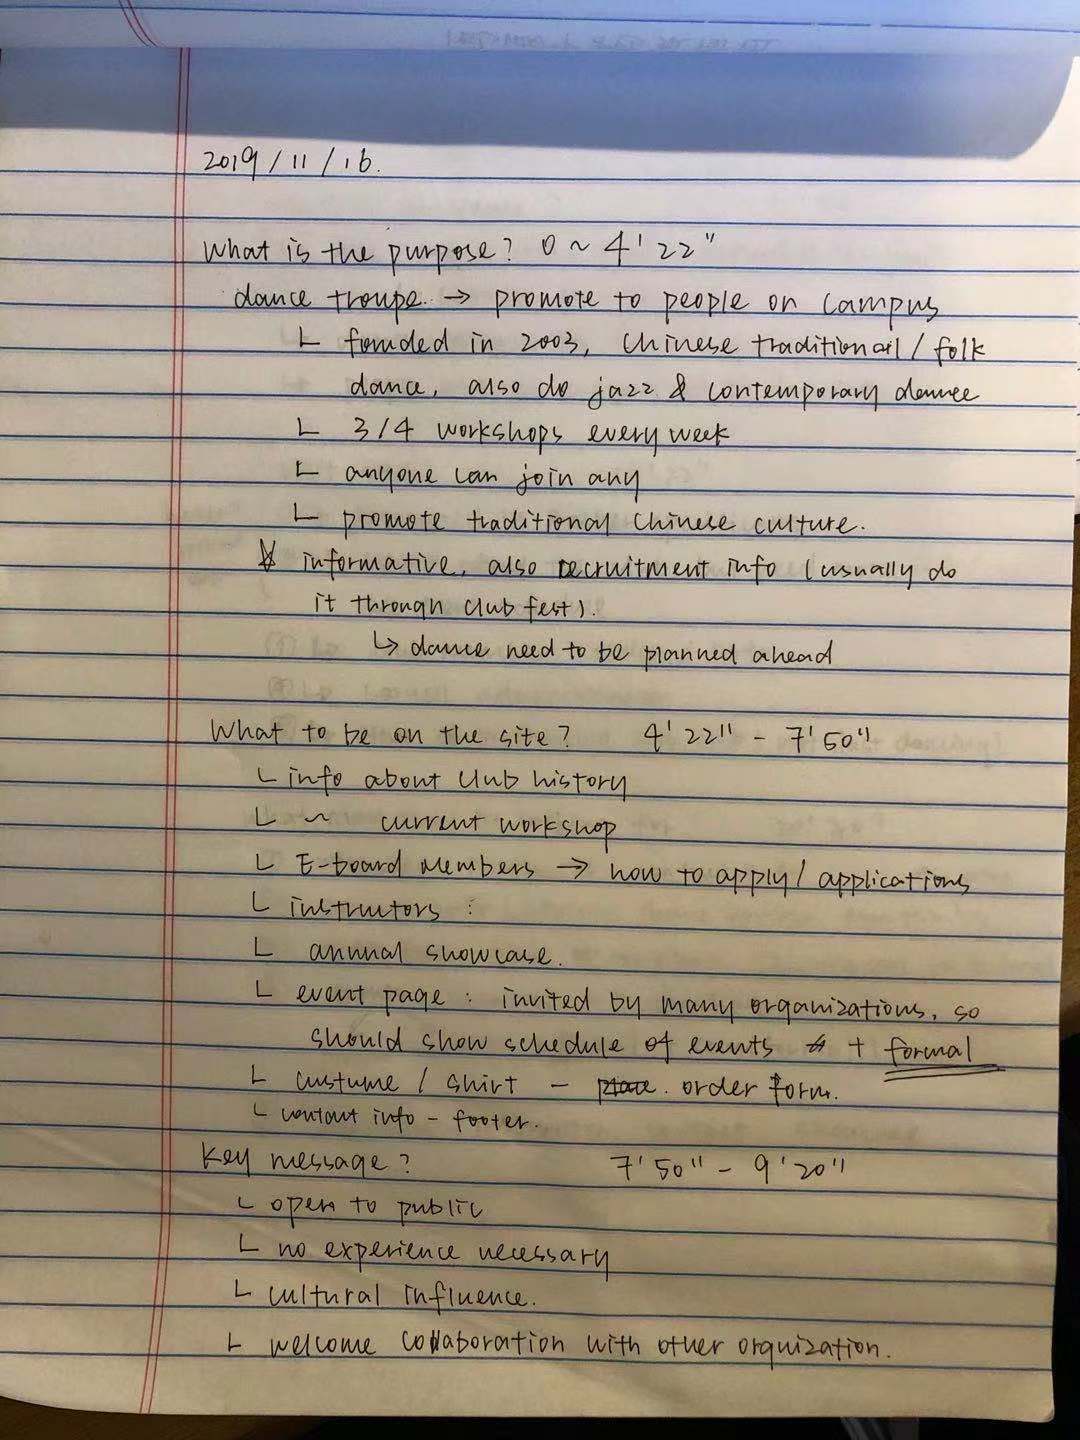 2019/11/16.
What is the purpose? 0 ~ 4'22"
dance troupe. → promote to people on campus
founded in 2003, Chinese traditional / folk
dance, also do jazz & contemporary dance
3/4 workshops every week
anyone can join any
promote traditional Chinese culture.
informative, also recruitment info (usually do
it through club fest).
↳ dance need to be planned ahead
What to be on the site? 4'22" - 7'50"
info about club history
~ current workshop
E-board members → how to apply / applications
instructors :
annual showcase.
event page : invited by many organizations, so
should show schedule of events + formal
custume / shirt - order form.
contact info - footer.
Key message? 7'50" - 9'20"
open to public
no experience necessary
cultural influence.
welcome collaboration with other orquization.